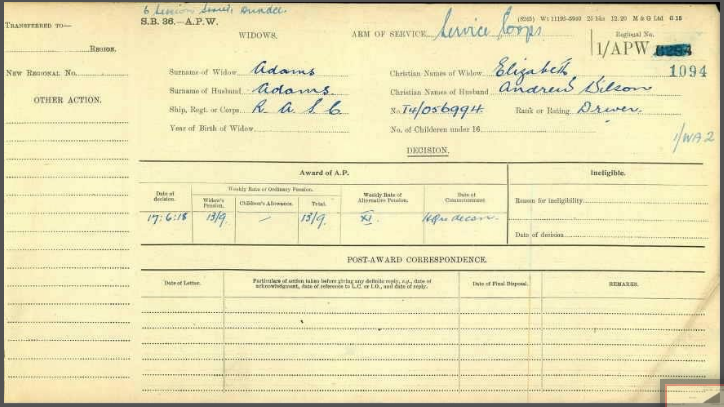 6 Street, Dundee.
S.B. 36.—A.P.W. (8283) Wt 11195-5940 25 bks 12.20 M & G Ltd
TRANSFERRED TO— WIDOWS. ARM OF SERVICE Service Corps. Regional No.
REGION. 1/APW
1094
NEW REGIONAL NO. Surname of Widow Adams Christian Names of Widow Elizabeth
OTHER ACTION. Surname of Husband Adams Christian Names of Husband Andrew
Ship, Regt. or Corps R. A. S. C No. T4/056994. Rank or Rating Driver.
Year of Birth of Widow No. of Children under 16 1/WA 2
DECISION.
Award of A.P. Ineligible.
Date of decision. Weekly Rate of Ordinary Pension. Weekly Rate of Alternative Pension. Date of Commencement Reason for ineligibility
Widow's Pension. Children's Allowance. Total.
17.6.18 13/9 — 13/9
Date of decision
POST-AWARD CORRESPONDENCE.
Date of Letter. Particulars of action taken before giving any definite reply, e.g., date of acknowledgment, date of reference to L.C. or I.O., and date of reply. Date of Final Disposal. REMARKS.